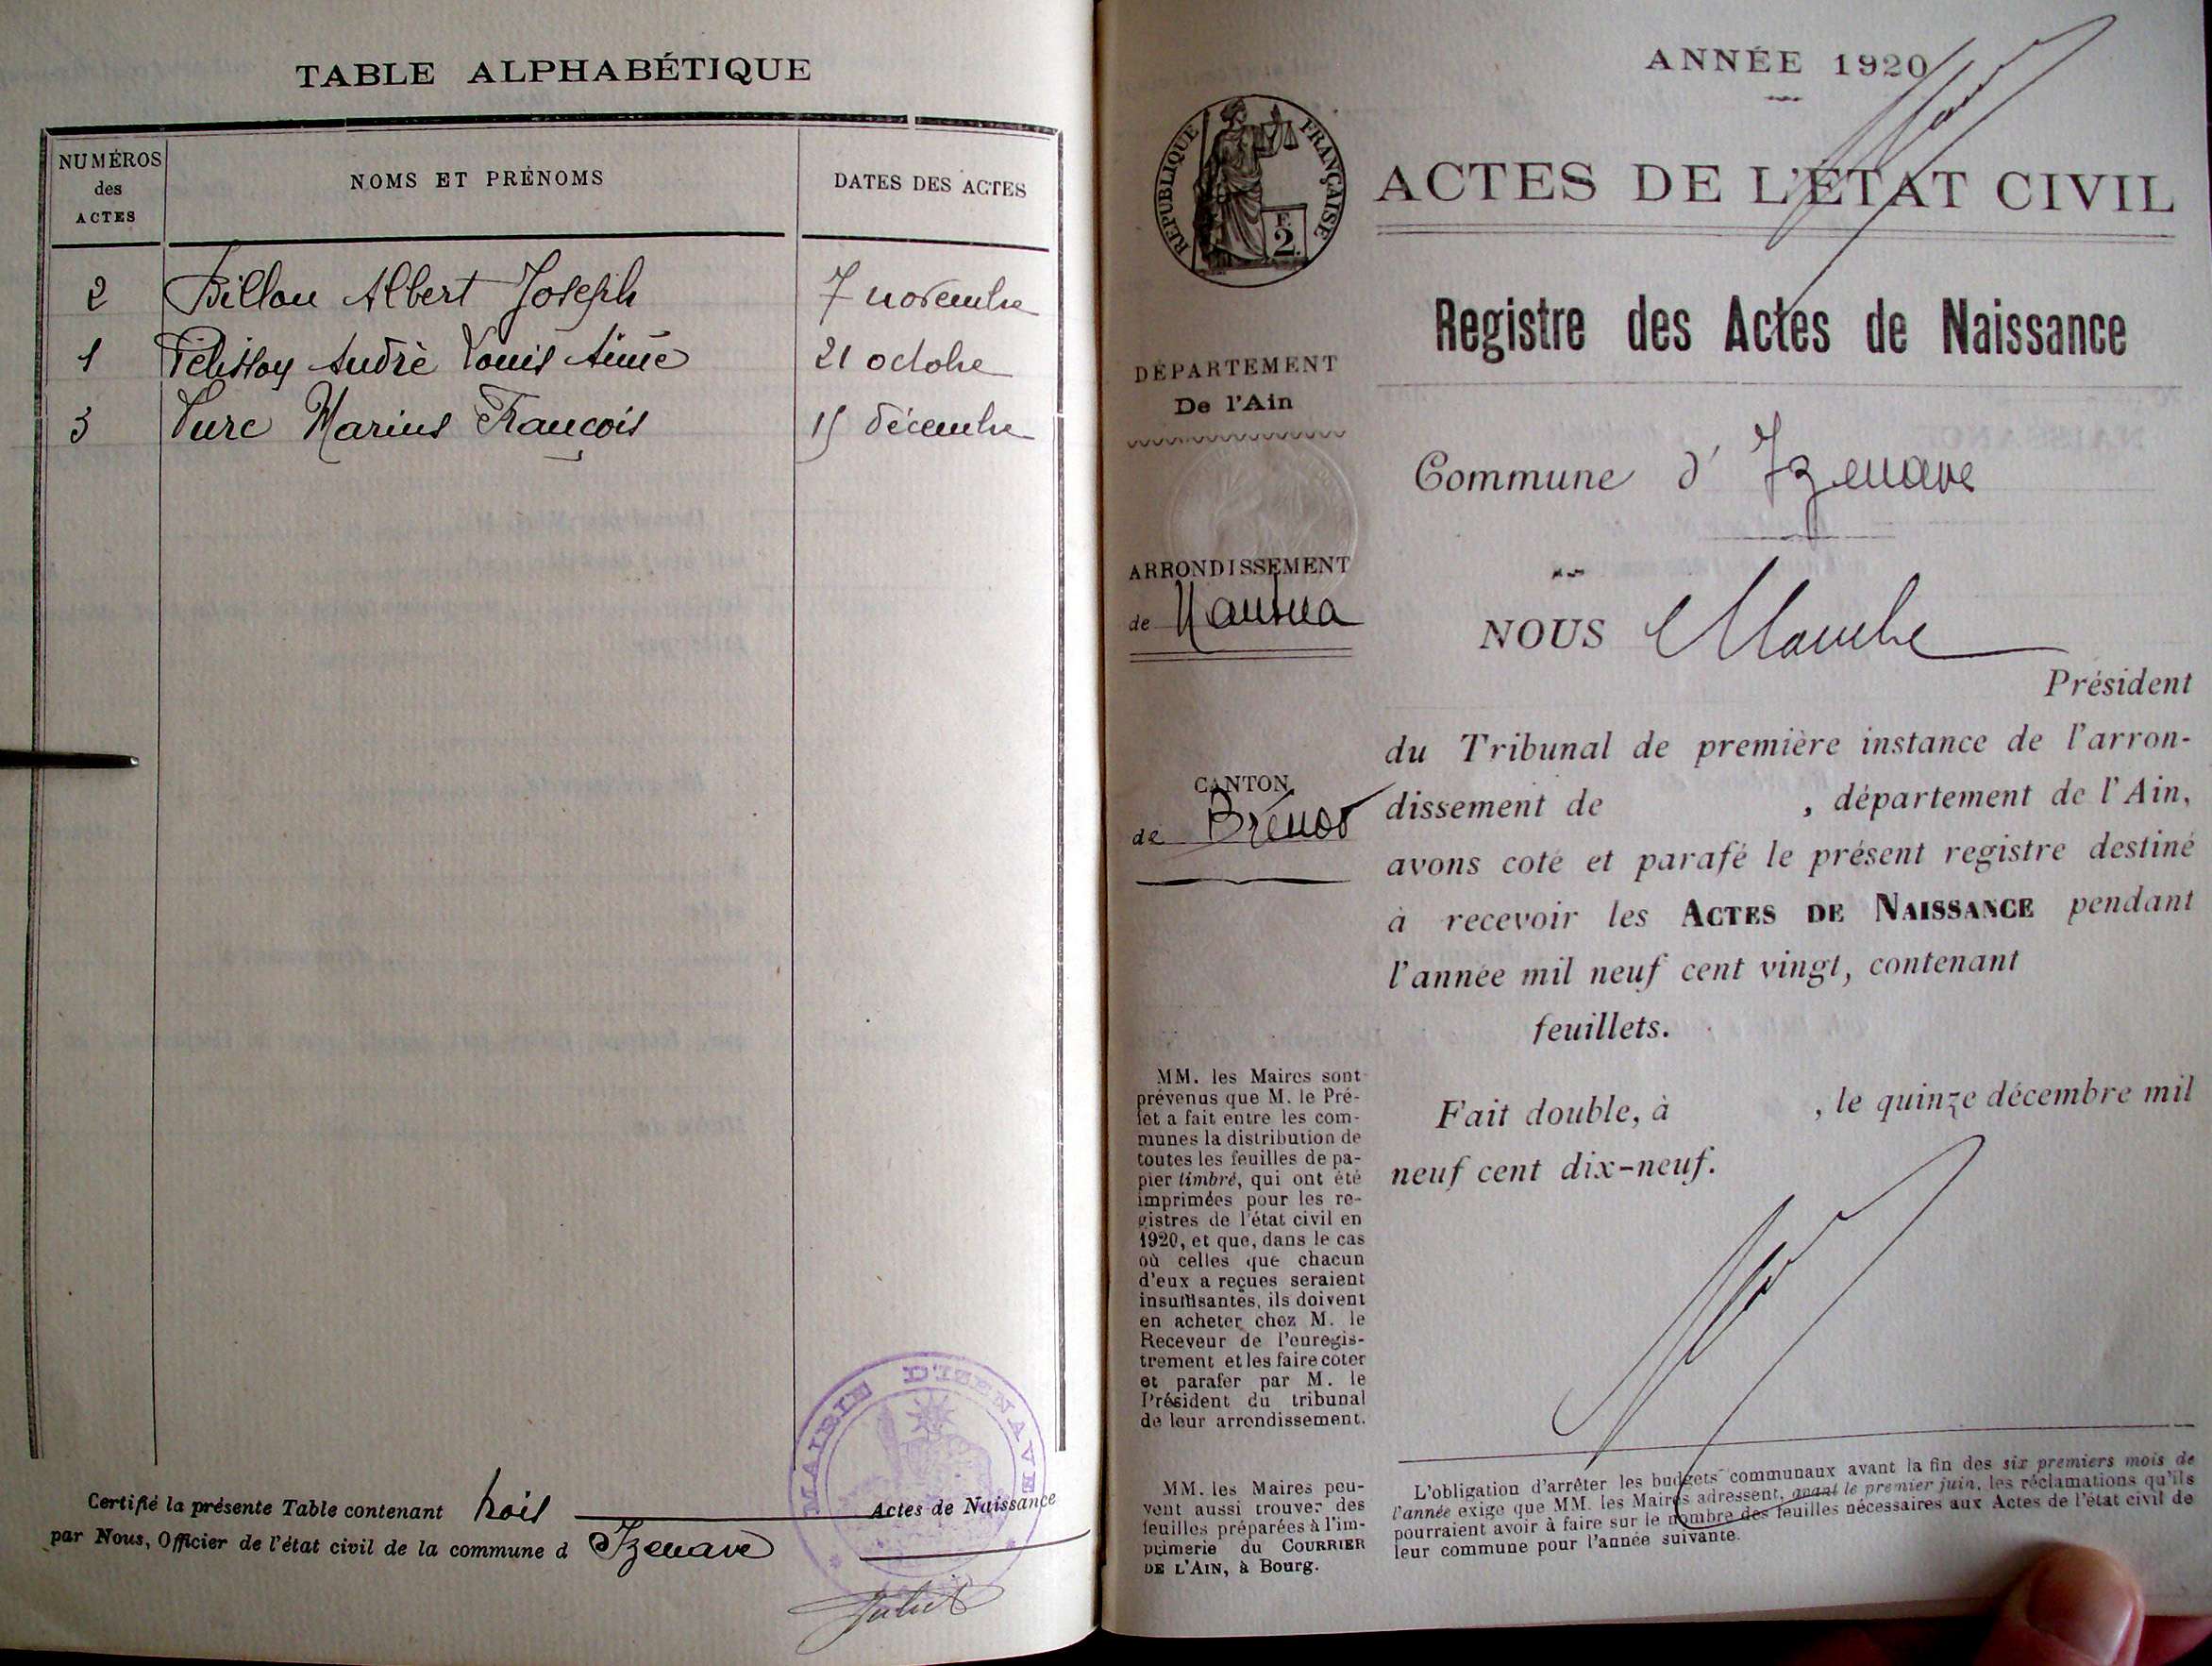 TABLE ALPHABÉTIQUE
NUMÉROS
des
ACTES
NOMS ET PRÉNOMS
DATES DES ACTES
2 Billon Albert Joseph 7 novembre
1 Pélisson André Louis Aimé 21 octobre
3 Vurc Marius François 15 décembre
Certifié la présente Table contenant trois Actes de Naissance
par Nous, Officier de l'état civil de la commune d Izenave
MAIRIE D'IZENAVE
ANNÉE 1920
RÉPUBLIQUE FRANÇAISE
F.
2
ACTES DE L'ÉTAT CIVIL
Registre des Actes de Naissance
DÉPARTEMENT
De l'Ain
Commune d'Izenave
ARRONDISSEMENT
de Nantua
CANTON
de Brénod
NOUS
Président
du Tribunal de première instance de l'arron-
dissement de , département de l'Ain,
avons coté et parafé le présent registre destiné
à recevoir les ACTES DE NAISSANCE pendant
l'année mil neuf cent vingt, contenant
feuillets.
Fait double, à , le quinze décembre mil
neuf cent dix-neuf.
MM. les Maires sont
prévenus que M. le Pré-
fet a fait entre les com-
munes la distribution de
toutes les feuilles de pa-
pier timbré, qui ont été
imprimées pour les re-
gistres de l'état civil en
1920, et que, dans le cas
où celles que chacun
d'eux a reçues seraient
insuffisantes, ils doivent
en acheter chez M. le
Receveur de l'enregis-
trement et les faire coter
et parafer par M. le
Président du tribunal
de leur arrondissement.
MM. les Maires peu-
vent aussi trouver des
feuilles préparées à l'im-
primerie du COURRIER
DE L'AIN, à Bourg.
L'obligation d'arrêter les budgets communaux avant la fin des six premiers mois de
l'année exige que MM. les Maires adressent, avant le premier juin, les réclamations qu'ils
pourraient avoir à faire sur le nombre des feuilles nécessaires aux Actes de l'état civil de
leur commune pour l'année suivante.